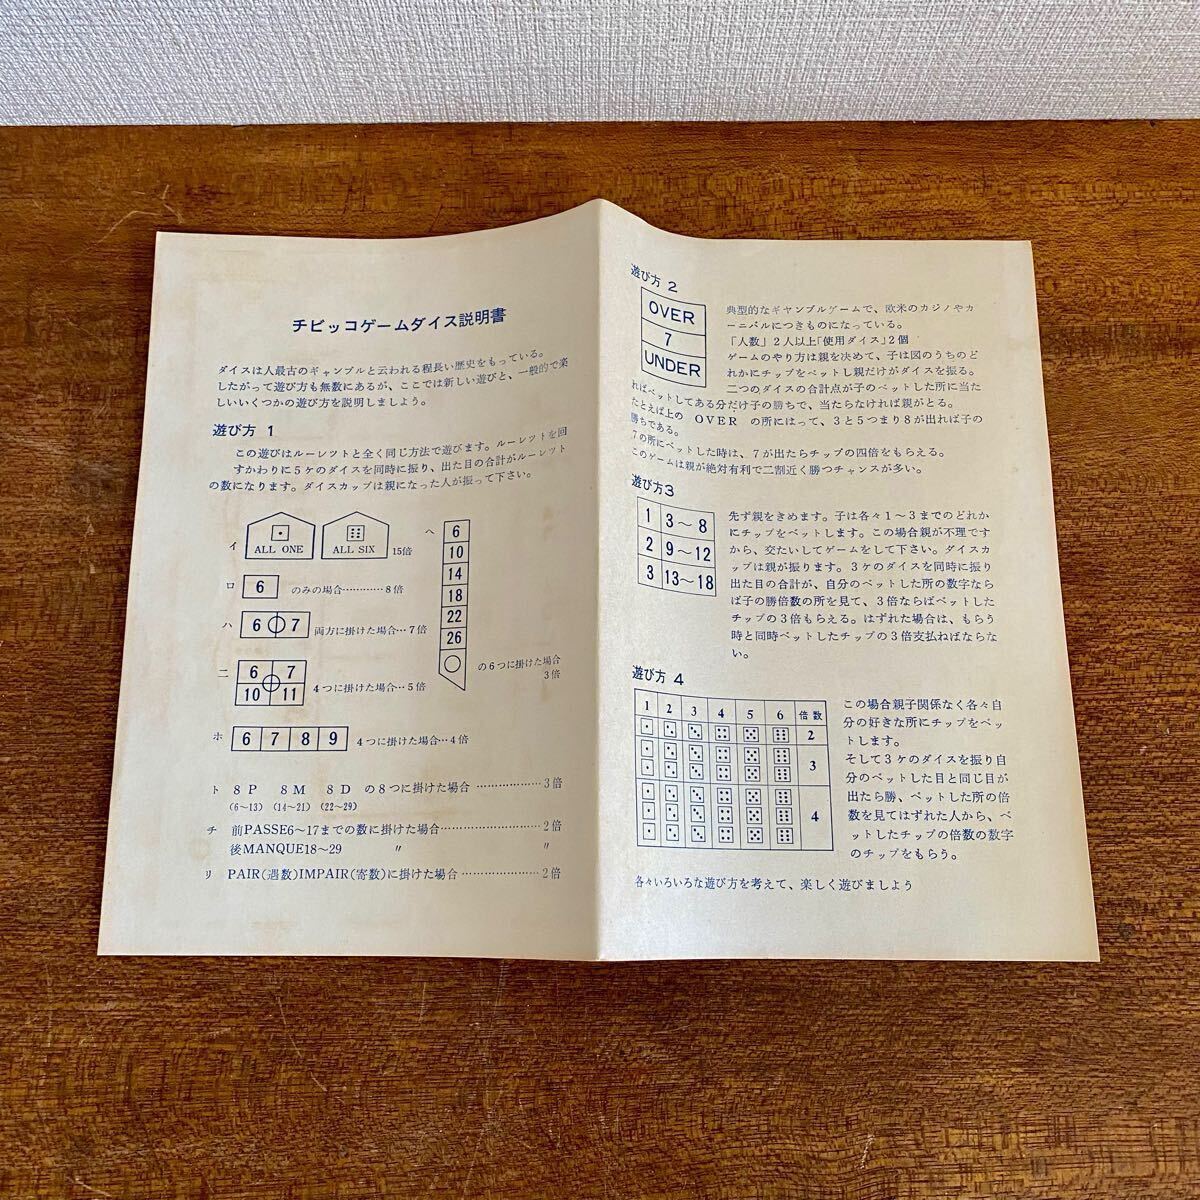 チビッコゲームダイス説明書
ダイスは人最古のギャンブルと云われる程長い歴史をもっている。
したがって遊び方も無数にあるが、ここでは新しい遊びと、一般的で楽
しいいくつかの遊び方を説明しましょう。
遊び方 1
この遊びはルーレットと全く同じ方法で遊びます。ルーレットを回
すかわりに5ケのダイスを同時に振り、出た目の合計がルーレット
の数になります。ダイスカップは親になった人が振って下さい。
イ ALL ONE ALL SIX 15倍
ロ 6 のみの場合…………8倍
ハ 6 7 両方に掛けた場合…7倍
ニ 6 7
10 11 4つに掛けた場合‥5倍
ホ 6 7 8 9 4つに掛けた場合‥4倍
ヘ 6
10
14
18
22
26
の6つに掛けた場合
3倍
ト 8P 8M 8D の8つに掛けた場合 ………………3倍
(6~13) (14~21) (22~29)
チ 前PASSE6~17までの数に掛けた場合………………………2倍
後MANQUE18~29 〃 〃
リ PAIR(遇数)IMPAIR(寄数)に掛けた場合 …………………2倍
遊び方 2
OVER
7
UNDER
典型的なギャンブルゲームで、欧米のカジノやカ
ーニバルにつきものになっている。
「人数」2人以上「使用ダイス」2個
ゲームのやり方は親を決めて、子は図のうちのど
れかにチップをベットし親だけがダイスを振る。
二つのダイスの合計点が子のベットした所に当た
ればベットしてある分だけ子の勝ちで、当たらなければ親がとる。
たとえば上の OVER の所にはって、3と5つまり8が出れば子の
勝ちである。
7の所にベットした時は、7が出たらチップの四倍をもらえる。
このゲームは親が絶対有利で二割近く勝つチャンスが多い。
遊び方3
1 3~8
2 9~12
3 13~18
先ず親をきめます。子は各々1~3までのどれか
にチップをベットします。この場合親が不理です
から、交たいしてゲームをして下さい。ダイスカ
ップは親が振ります。3ケのダイスを同時に振り
出た目の合計が、自分のベットした所の数字なら
ば子の勝倍数の所を見て、3倍ならばベットした
チップの3倍もらえる。はずれた場合は、もらう
時と同時ベットしたチップの3倍支払ねばならな
い。
遊び方 4
1 2 3 4 5 6 倍数
2
3
4
この場合親子関係なく各々自
分の好きな所にチップをベッ
トします。
そして3ケのダイスを振り自
分のベットした目と同じ目が
出たら勝、ベットした所の倍
数を見てはずれた人から、ベ
ットしたチップの倍数の数字
のチップをもらう。
各々いろいろな遊び方を考えて、楽しく遊びましよう